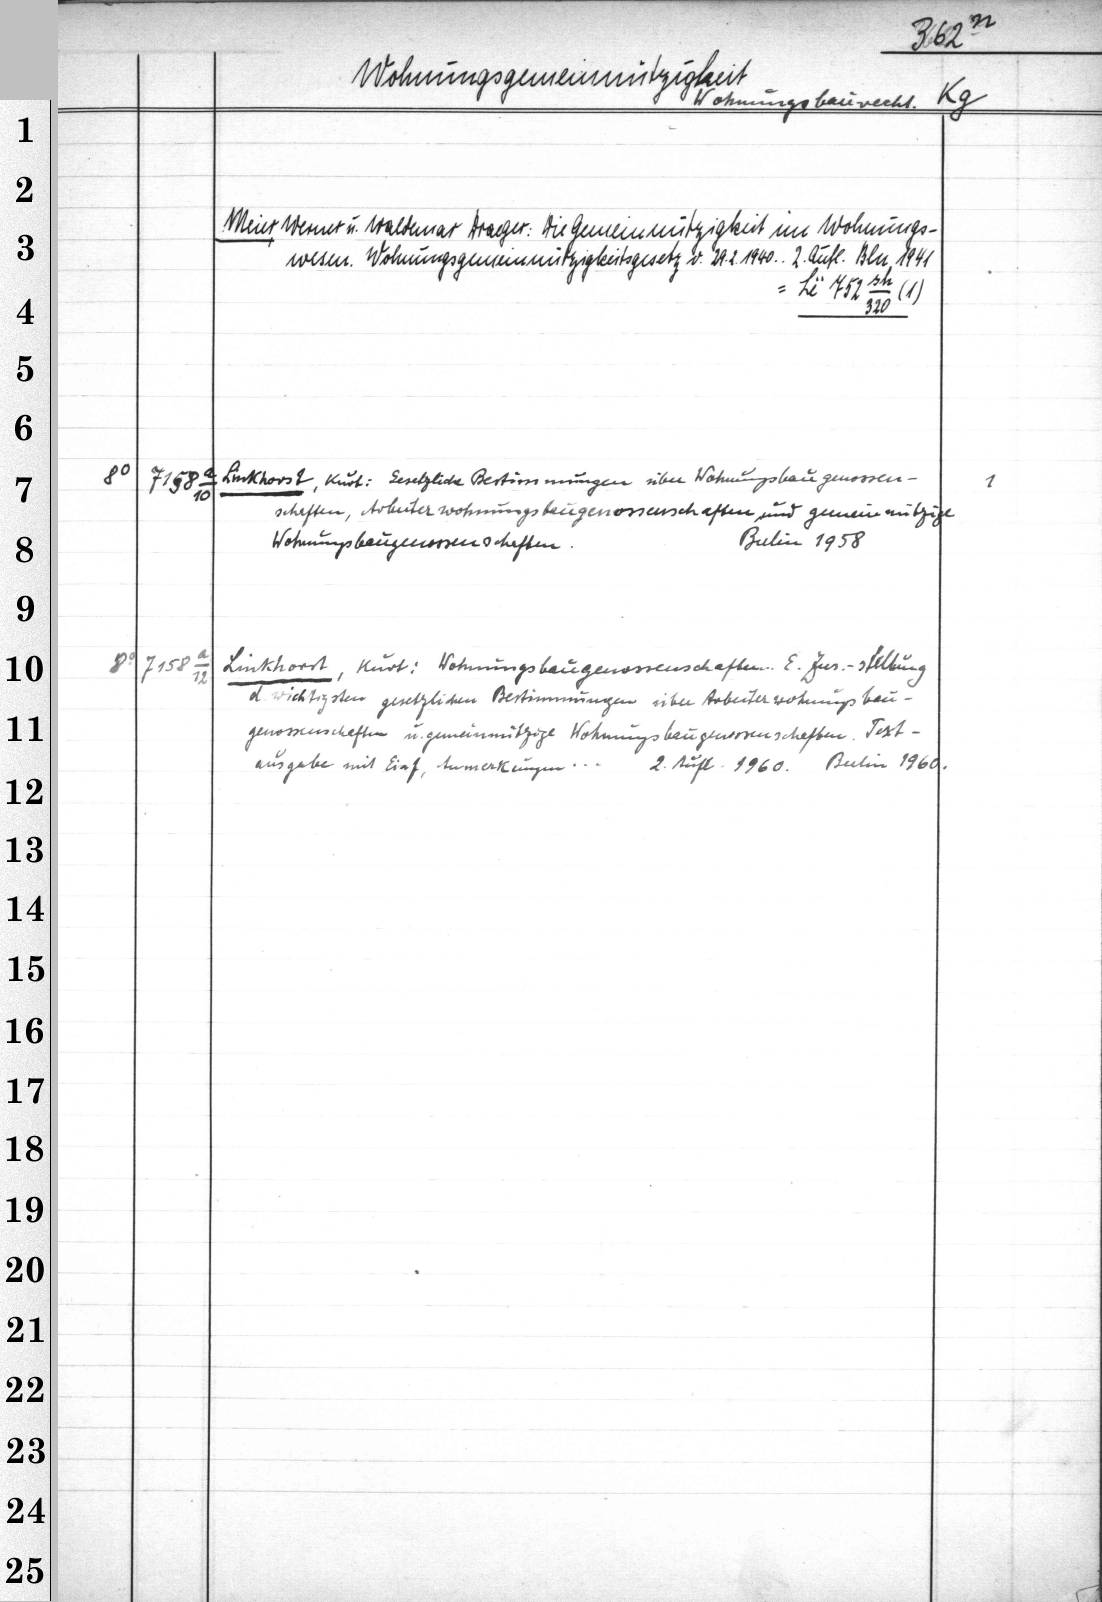 362 n
Wohnungsgemeinnützigkeit
Wohnungsbaurecht. Kg
1
2
Meier, Werner u. Waldemar Draeger: Die Gemeinnützigkeit im Wohnungs-
3
wesen. Wohnungsgemeinnützigkeitsgesetz v. 29.2.1940.. 2. Aufl. Bln 1941
= Lü 752 sh/320 (1)
4
5
6
8° 7158 a/10 Linkhorst, Kurt: Gesetzliche Bestimmungen über Wohnungsbaugenossen- 1
7
schaften, Arbeiterwohnungsbaugenossenschaften und gemeinnützige
8
Wohnungsbaugenossenschaften. Berlin 1958
9
8° 7158 a/12 Linkhorst, Kurt: Wohnungsbaugenossenschaften. E. Zus.-stellung
10
d. wichtigsten gesetzlichen Bestimmungen über Arbeiterwohnungsbau-
11
genossenschaften u. gemeinnützige Wohnungsbaugenossenschaften. Text-
ausgabe mit Einf., Anmerkungen ... 2. Aufl. 1960. Berlin 1960.
12
13
14
15
16
17
18
19
20
21
22
23
24
25